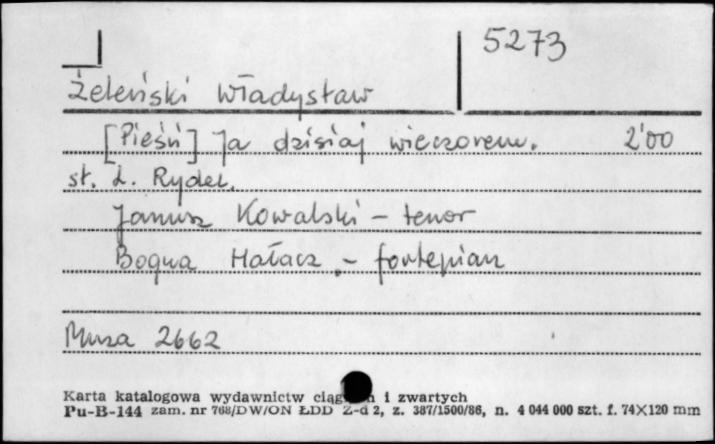 5273
Żeleński Władysław
[Pieśń] Ja dzisiaj wieczorem. 2'00
sł. L. Rydel.
Janusz Kowalski – tenor
Bogna Hałacz – fortepian
Muza 2662
Karta katalogowa wydawnictw ciąg i zwartych
Pu-B-144 zam. nr 768/DW/ON ŁDD Z-d 2, z. 387/1500/86, n. 4 044 000 szt. f. 74×120 mm